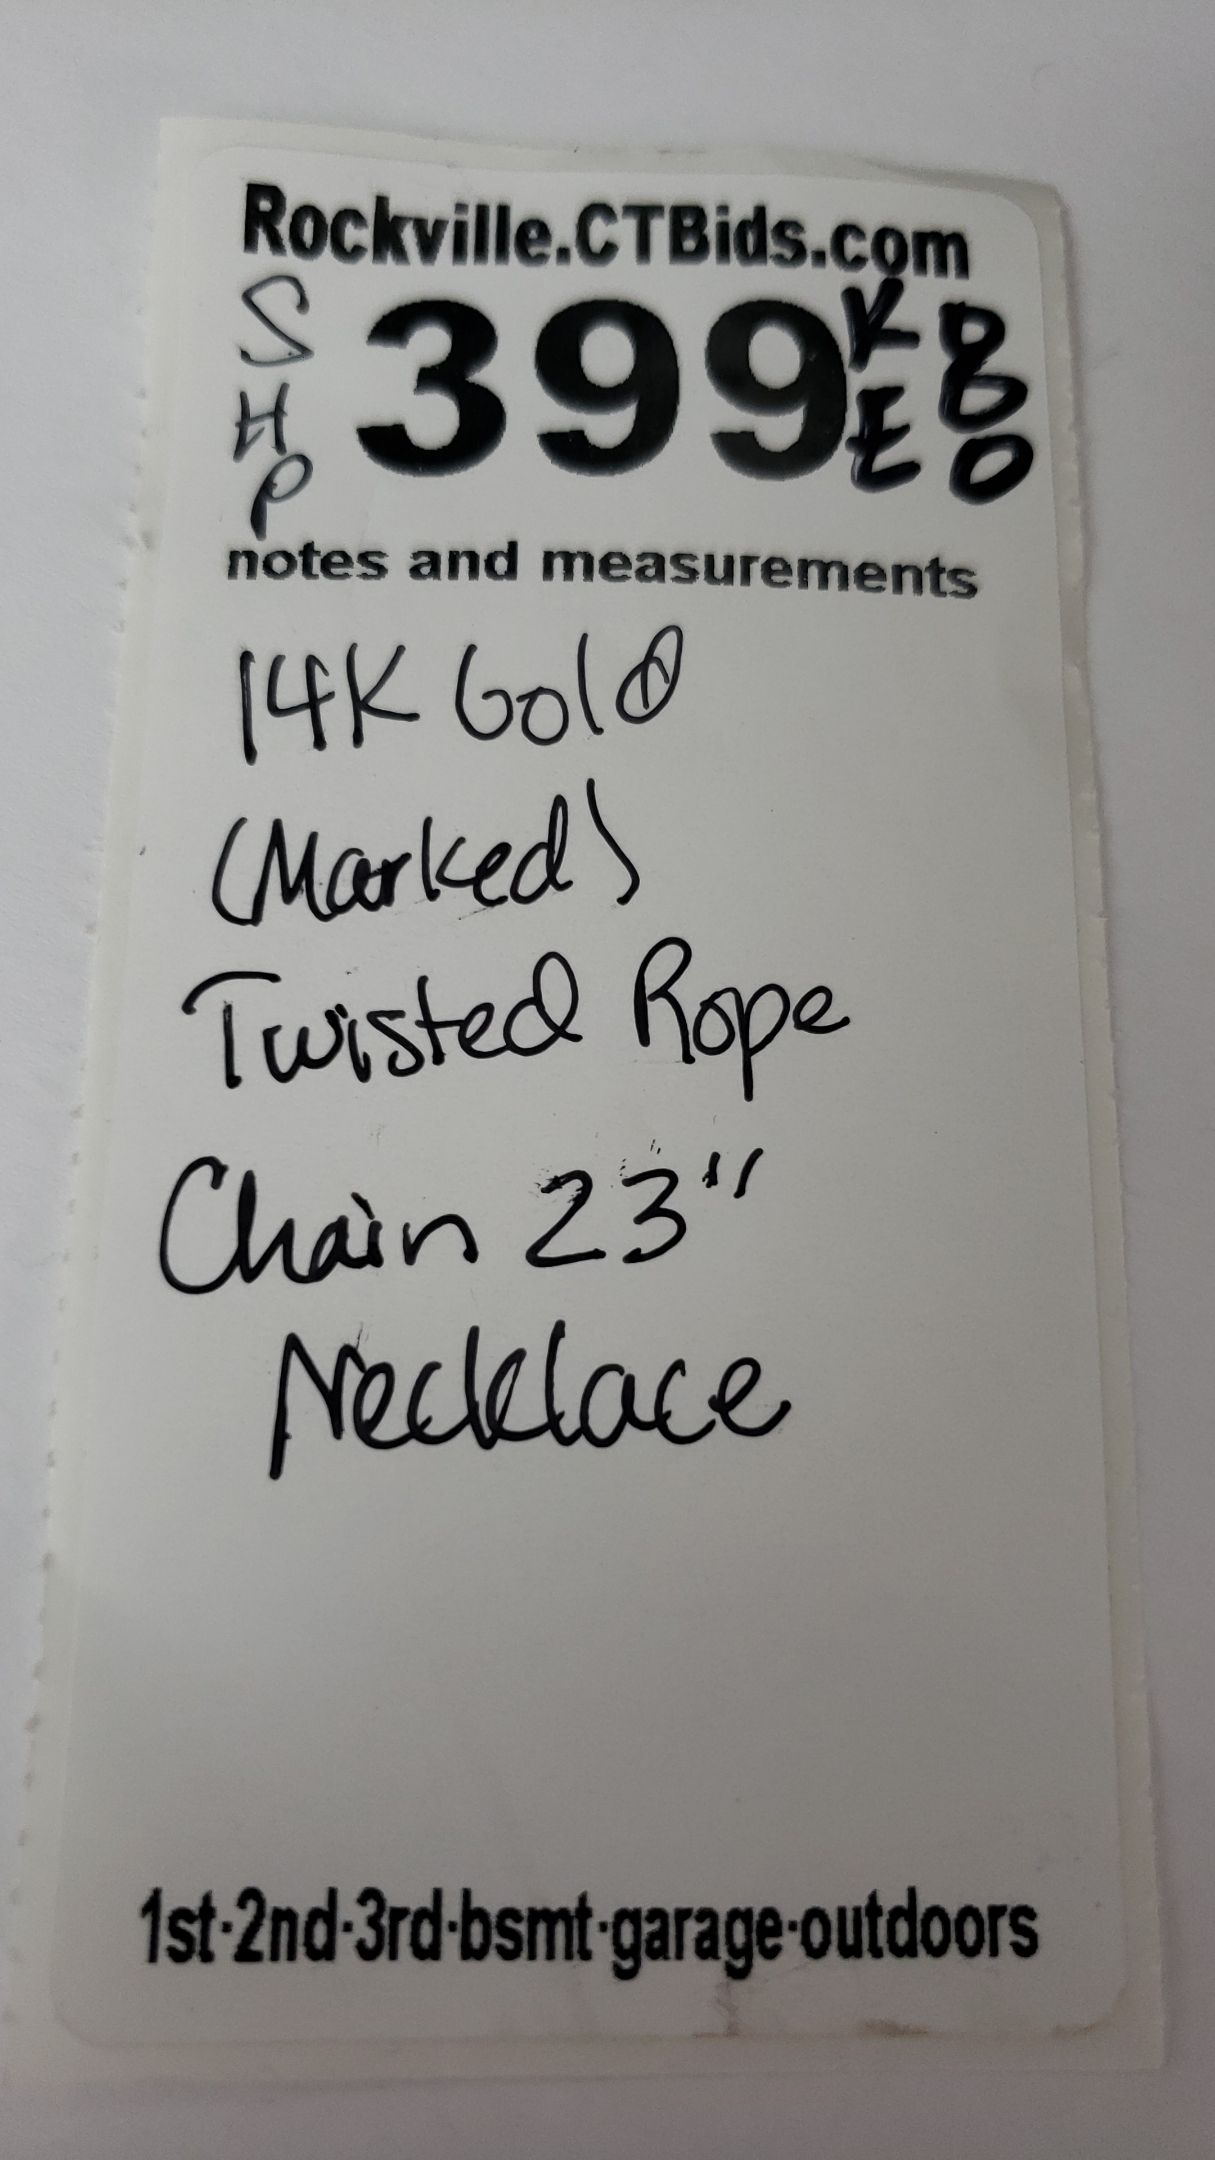 Rockville.CTBids.com
SHP 399 KE DOO
notes and measurements
14K Gold
(Marked)
Twisted Rope
Chain 23"
Necklace
1st·2nd·3rd·bsmt·garage·outdoors